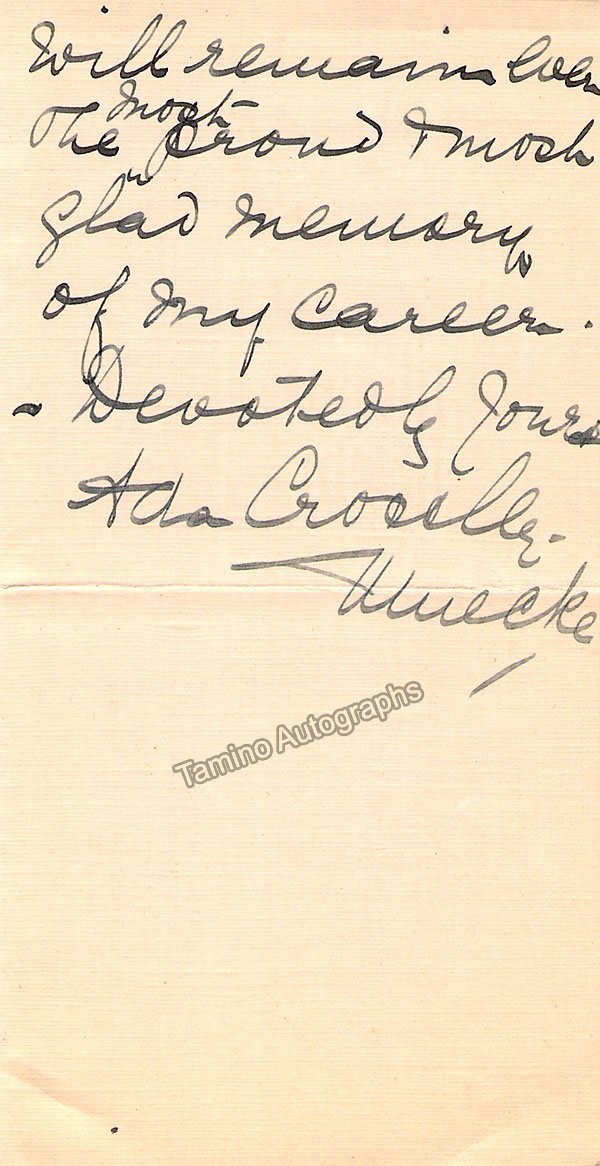 will remain ever
the most proud & most
glad memory
of my career.
- Devotedly Yours
Ada Crossley.
Muecke
Tamino Autographs